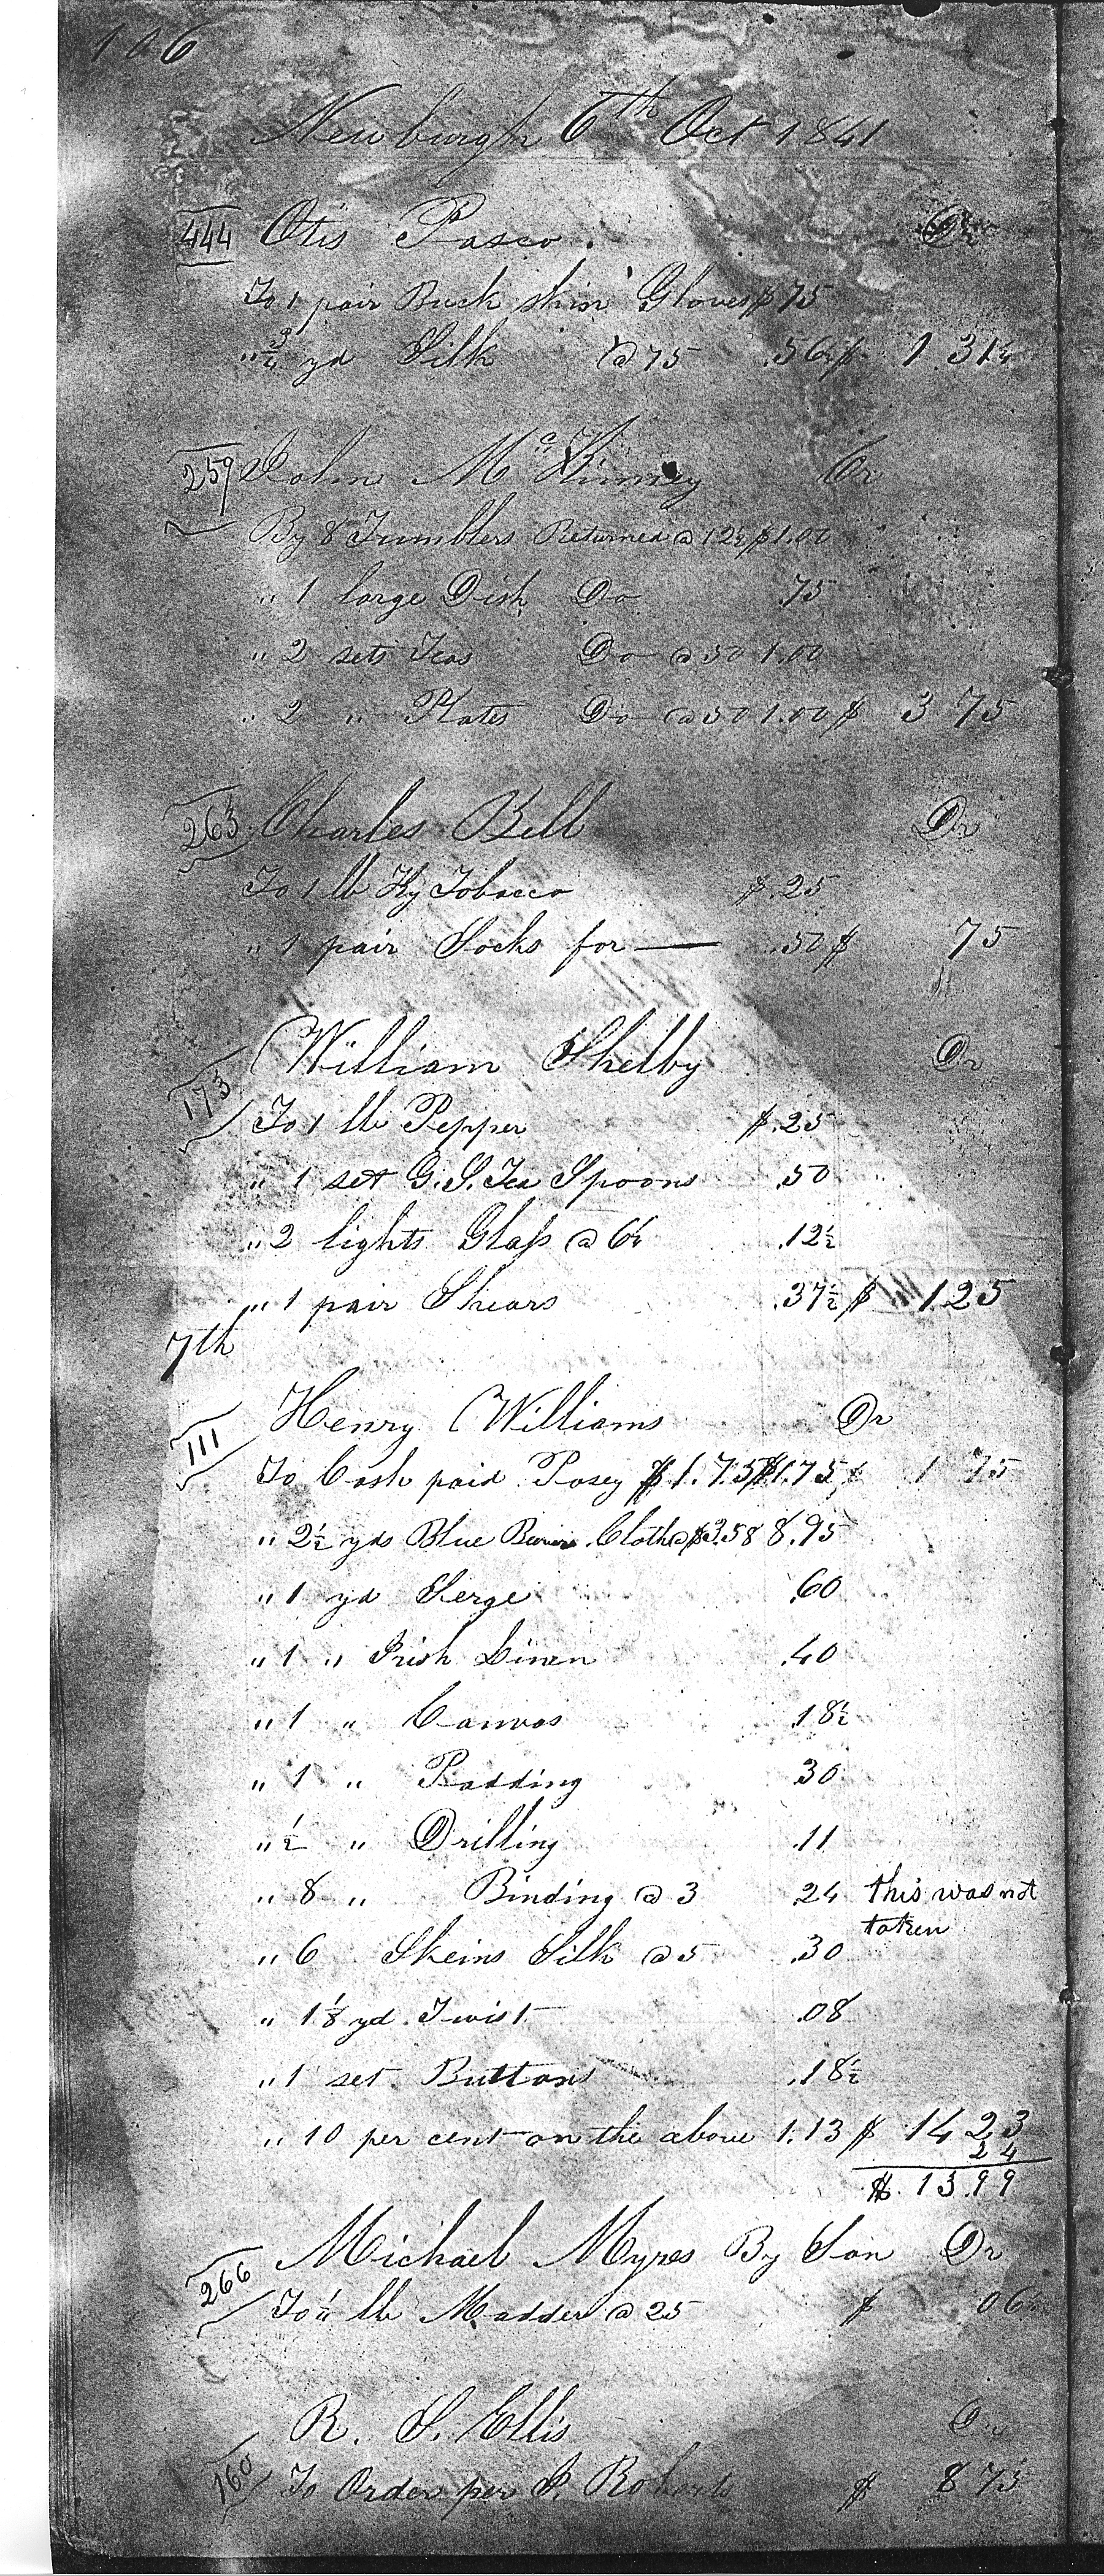 106
Newburgh 6th Oct 1841
444 Otis Pasco. Dr
To 1 pair Buck skin Gloves $ 75
" 3/4 yd Silk @ 75 .56¼ $ 1 31¼
259 John McKinney Cr
By 8 Tumblers Returned @ 12½ $1.00
" 1 large Dish Do .75
" 2 sets Teas Do @ 50 1.00
" 2 " Plates Do @ 50 1.00 $ 3 75
263 Charles Bell Dr
To 1 lb Ky Tobacco $ .25
" 1 pair Socks for — .50 $ 75
173 William Shelby Dr
To 1 lb Pepper $ .25
" 1 set G. S. Tea Spoons .50
" 2 lights Glass @ 6¼ .12½
" 1 pair Shears .37½ $ 1 25
7th
111 Henry Williams Dr
To Cash paid Posey $1.75 $1.75 $ 1 75
" 2½ yds Blue Cloth @ $3.58 8.95
" 1 yd Serge .60
" 1 " Irish Linen .40
" 1 " Canvas .18½
" 1 " Padding 30
" ½ " Drilling .11
" 8 " Binding @ 3 24 this was not
taken
" 6 Skeins Silk @ 5 .30
" 1⅛ yd Twist .08
" 1 set Buttons .18½
" 10 per cent on the above 1.13 $ 14 23
24
$ 13.99
266 Michael Myres By Son Dr
To ¼ lb Madder @ 25 $ 06¼
160 R. S. Ellis Dr
To Order per S. Roberts $ 8 75